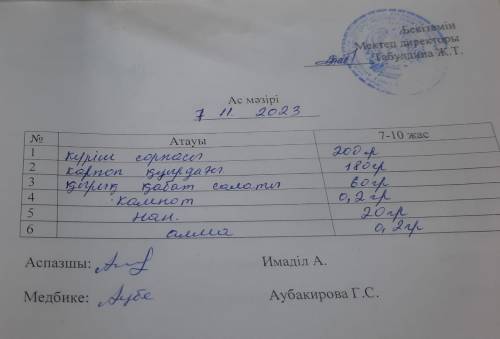 Бекітамін
Мектеп директоры
Табулдина Ж.Т.
Ас мәзірі
7 11. 2023
№ Атауы 7-10 жас
1 күріш сорпасы 200гр
2 картоп қуырдағы 180гр
3 қырық қабат салаты 60гр
4 Компот 0,2гр
5 нан. 20гр
6 алма 0,2гр
Аспазшы: Имаділ А.
Медбике: Аубе Аубакирова Г.С.